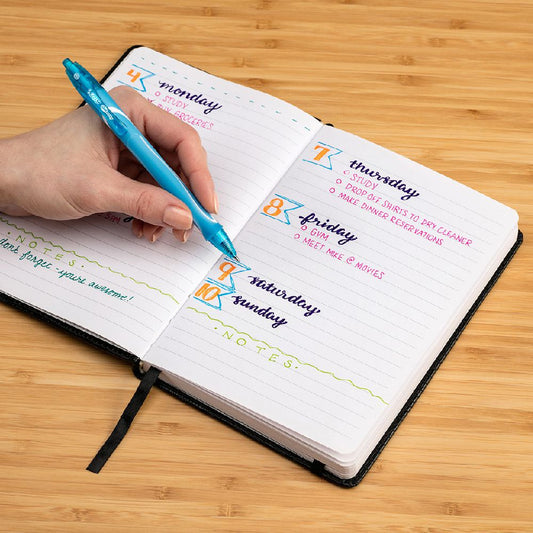 4 monday
STUDY
BUY GROCERIES
NOTES
don't forget - you're awesome!
7 thursday
STUDY
DROP OFF SHIRTS TO DRY CLEANER
MAKE DINNER RESERVATIONS
8 friday
GYM
MEET MIKE @ MOVIES
9 saturday
10 sunday
·NOTES·